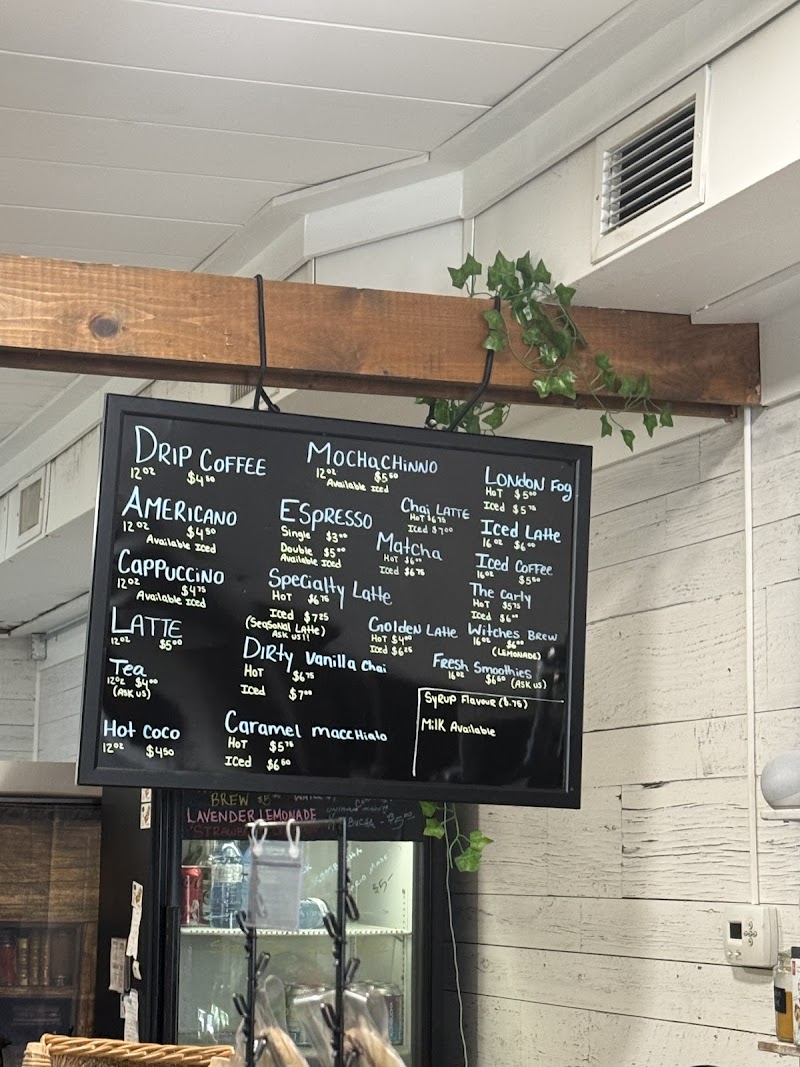 DRIP COFFEE
12oz $4.50
AMERICANO
12oz $4.50
Available Iced
CAPPUCCINO
12oz $4.75
Available Iced
LATTE
12oz $5.00
Tea
12oz $4.00
(ASK US)
HOT COCO
12oz $4.50
MOCHaCHiNNO
12oz $5.50
Available Iced
ESPRESSO
Single $3.00
Double $5.00
Available Iced
Specialty Latte
HOT $6.75
Iced $7.25
(Seasonal Latte)
ASK US!!
DIRty Vanilla Chai
HOT $6.75
Iced $7.00
Caramel maccHiato
HOT $5.75
ICed $6.50
Chai LATTE
HOT $6.75
Iced $7.00
Matcha
HOT
Iced $6.75
Golden Latte
HOT $4.00
Iced $6.25
LONDON FOg
HOT $5.00
Iced $5.75
Iced Latte
16oz $6.00
Iced COFFEE
16oz $5.50
The Carly
HOT $5.75
Iced
Witches BREW
16oz $6.00
(LEMONADE)
FResh Smoothies
16oz $6.50 (ASK US)
SyRUP Flavour ($.75)
MilK Available
BREW
LAVENDER LEMONADE